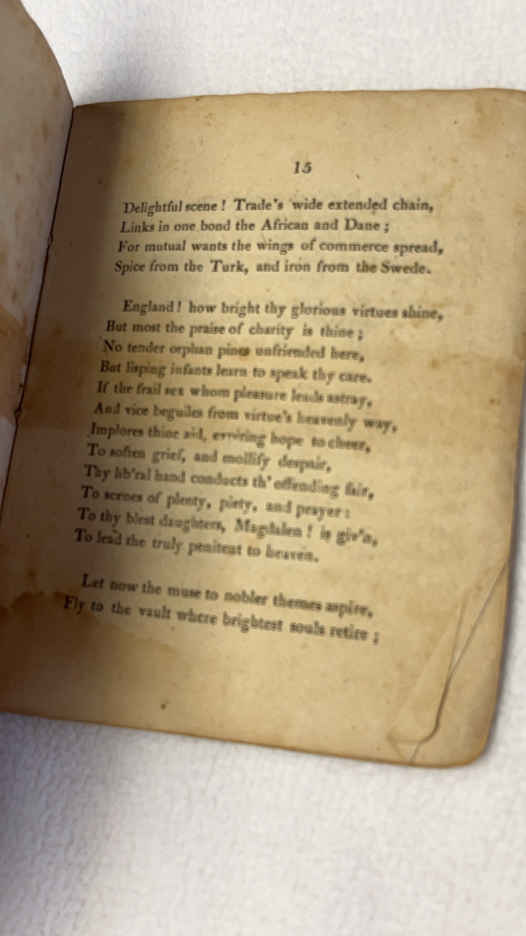 15
Delightful scene! Trade's wide extended chain,
Links in one bond the African and Dane;
For mutual wants the wings of commerce spread,
Spice from the Turk, and iron from the Swede.
England! how bright thy glorious virtues shine,
But most the praise of charity is thine;
No tender orphan pines unfriended here,
But lisping infants learn to speak thy care.
If the frail sex whom pleasure leads astray,
And vice beguiles from virtue's heavenly way,
Implores thine aid, hope to cheer,
To soften grief, and mollify despair,
Thy lib'ral hand conducts th' offending fair,
To scenes of plenty, piety, and prayer:
To thy blest daughters, Magdalen! is giv'n,
To lead the truly penitent to heaven.
Let now the muse to nobler themes aspire,
Fly to the vault where brightest souls retire;